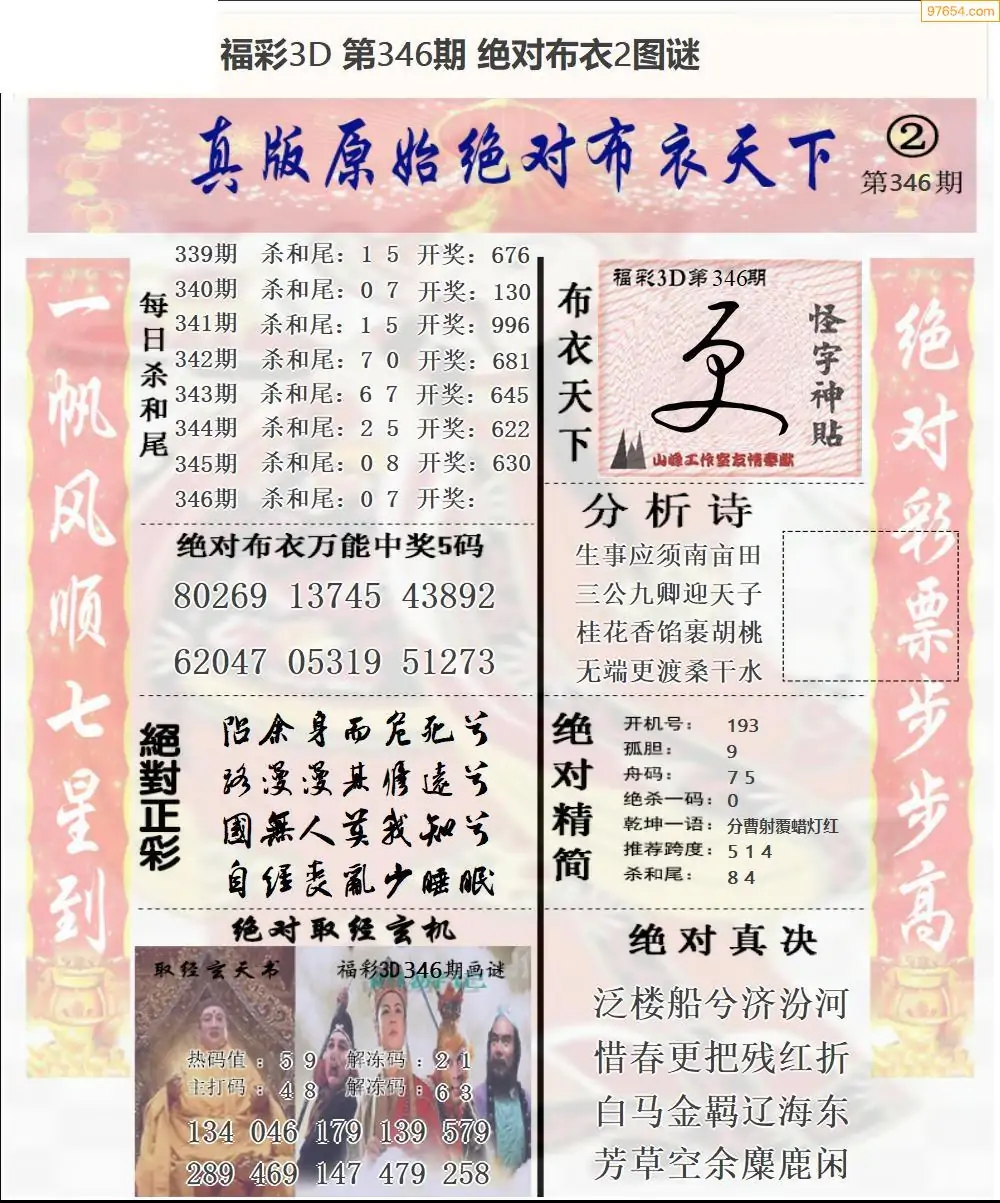 97654.com
福彩3D 第346期 绝对布衣2图谜
真版原始绝对布衣天下
②
第346期
一帆风顺七星到
每日杀和尾
339期 杀和尾：1 5 开奖：676
340期 杀和尾：0 7 开奖：130
341期 杀和尾：1 5 开奖：996
342期 杀和尾：7 0 开奖：681
343期 杀和尾：6 7 开奖：645
344期 杀和尾：2 5 开奖：622
345期 杀和尾：0 8 开奖：630
346期 杀和尾：0 7 开奖：
绝对布衣万能中奖5码
80269 13745 43892
62047 05319 51273
絕對正彩
陷余身而危死兮
路漫漫其修遠兮
國無人莫我知兮
自经丧亂少睡眠
绝对取经玄机
取经玄天书
福彩3D346期画谜
热码值：5 9 解冻码：2 1
主打码：4 8 解冻码：6 3
134 046 179 139 579
289 469 147 479 258
布衣天下
福彩3D第346期
怪字神貼
山峰工作室友情奉献
分析诗
生事应须南亩田
三公九卿迎天子
桂花香馅裹胡桃
无端更渡桑干水
绝对精简
开机号：193
孤胆：9
舟码：7 5
绝杀一码：0
乾坤一语：分曹射覆蜡灯红
推荐跨度：5 1 4
杀和尾：8 4
绝对真决
泛楼船兮济汾河
惜春更把残红折
白马金羁辽海东
芳草空余麋鹿闲
绝对彩票步步高